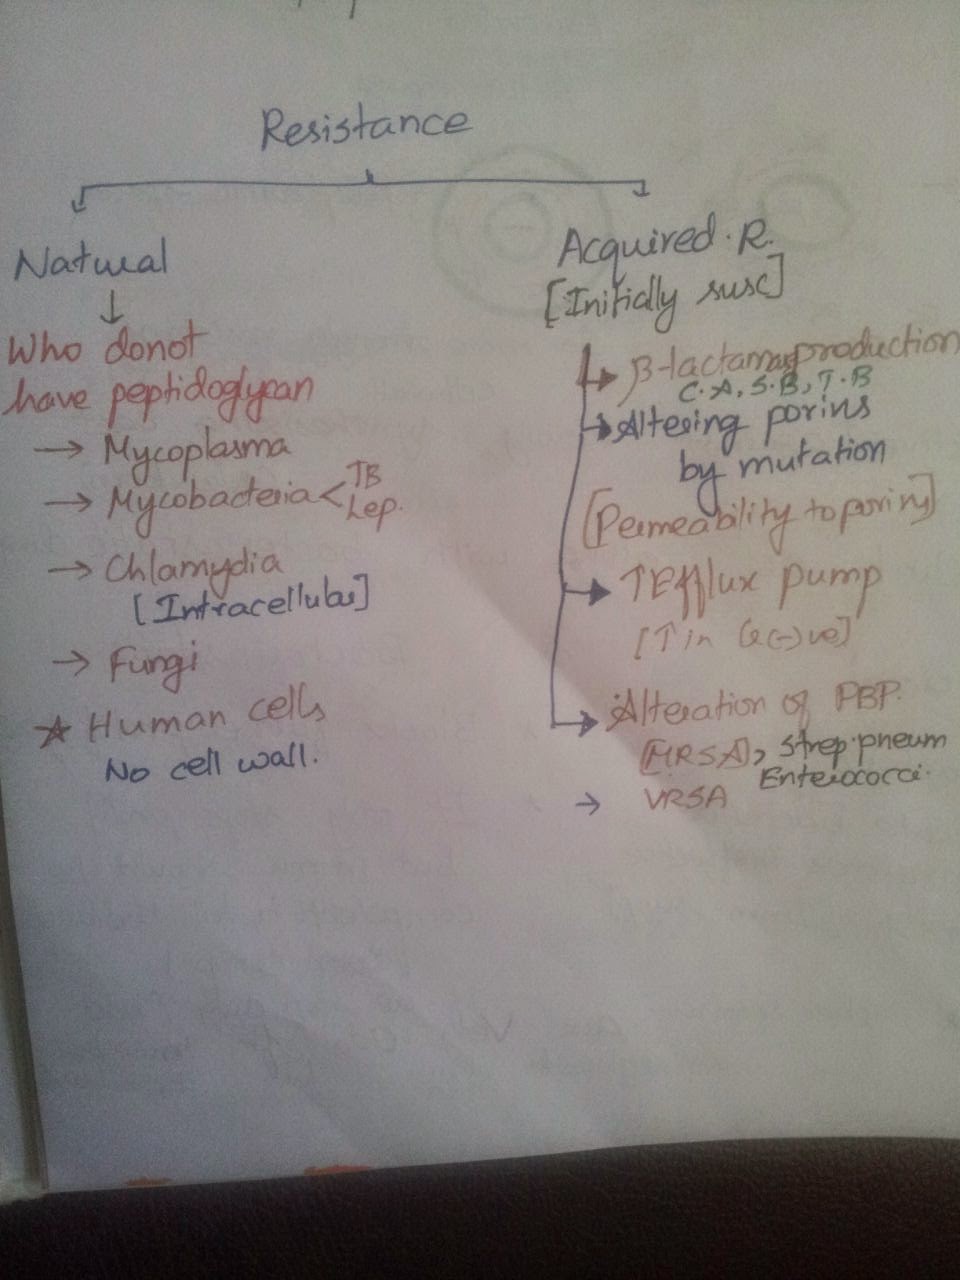 Resistance
Natural
↓
Who donot
have peptidoglycan
→ Mycoplasma
→ Mycobacteria < TB
Lep.
→ Chlamydia
[Intracellular]
→ Fungi
★ Human cells
No cell wall.
Acquired. R.
[Initially susc]
→ β-lactamase production
C.A, S.B, T.B
→ Altering porins
by mutation
[Permeability to porins]
→ ↑Efflux pump
[↑ in G(-)ve]
→ Alteration of PBP.
[MRSA], Strep. pneum
Enterococci.
→ VRSA